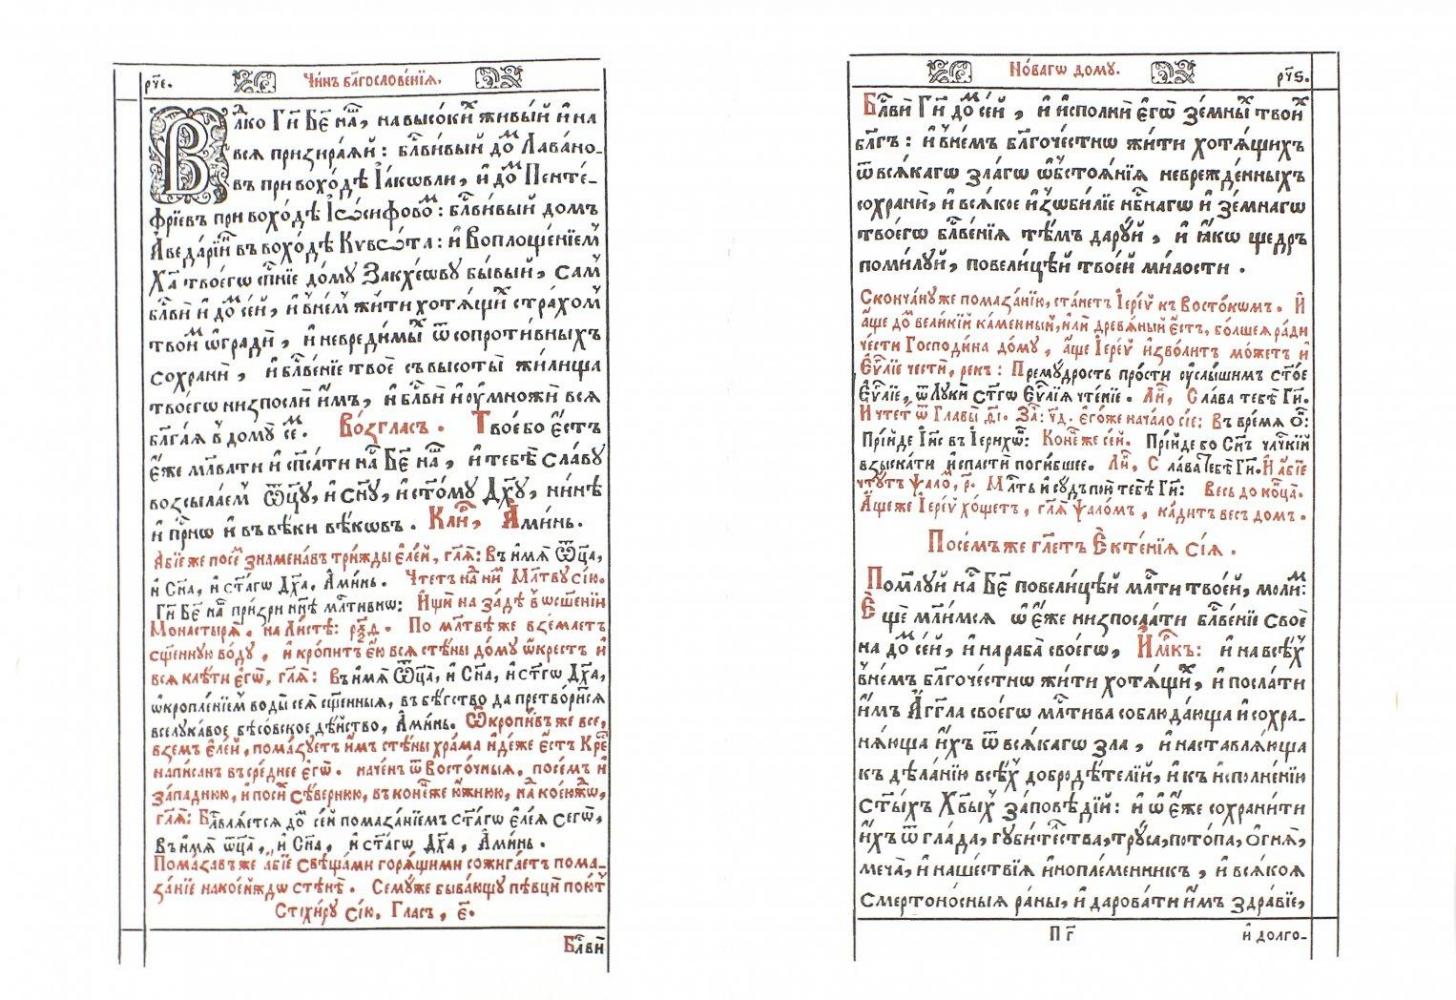 рч҃е.
Чи́нъ бл҃гослове́нїѧ.
Влⷣко Гдⷭ҇и Бж҃е на́шъ, на высо́кихъ живы́й и҆ на
всѧ̑ призира́ѧй: бл҃ви́вый до́мъ Лава́но-
въ при вохо́дѣ І҆а́кѡвли, и҆ до́мъ Пенте-
фрі́евъ при вохо́дѣ І҆ѡ́сифовомъ: бл҃ви́вый домъ
А҆ведда́рїинъ въ вохо́дѣ Кувѡ́та: и҆ Воплоще́нїемъ
Хрⷭ҇та̀ твоегѡ̀ спⷭ҇нїе до́му Закхе́ѡву бы́вый, са́мъ
бл҃вѝ и҆ до́мъ се́й, и҆ в̾не́мъ жи́ти хотѧ́щихъ стра́хомъ
твои́мъ ѡ҆градѝ, и҆ невреди́мыхъ ѿ сопроти́вныхъ
сохранѝ, и҆ бл҃ве́нїе твоѐ съ высоты̀ жили́ща
твоегѡ̀ низпослѝ и҆̀мъ, и҆ бл҃вѝ и҆ ᲂу҆мно́жи всѧ̑
бл҃га́ѧ в̾ дому̀ се́мъ. Во́згласъ. Твое́ бо є҆́сть
є҆́же мл҃вати и҆ сп҃са́ти на́съ Бж҃е на́шъ, и҆ тебѣ̀ сла́ву
возсыла́емъ Ѻ҆ц҃у̀, и҆ Сн҃у, и҆ ст҃о́му Дх҃у, ни́нѣ
и҆ при́снѡ и҆ въ вѣ́ки вѣкѡ́въ. Кли́ръ, А҆ми́нь.
А҆́бїе же посе́мъ знамена́въ три́жды є҆ле́й, гл҃ѧ: Въ и҆́мѧ Ѻ҆ц҃а̀,
и҆ Сн҃а, и҆ ст҃а́гѡ Дх҃а, А҆ми́нь. Чте́тъ на́дъ ни́мъ Мл҃тву сїю̀.
Гдⷭ҇и Бж҃е на́шъ при́зри нн҃ѣ млⷭ҇тивнѡ: И҆щѝ на за́дѣ в̾ ѡ҆сщ҃е́нїи
Монастырѧ̀. на ли́стѣ: рѯ҃д. По мл҃твѣ же взе́млетъ
сщ҃е́нную во́ду, и҆ кропи́тъ є҆́ю всѧ̑ стѣ́ны до́му ѡ҆́крестъ и҆
всѧ̑ клѣ́ти є҆гѡ̀, гл҃ѧ: Въ и҆́мѧ Ѻ҆ц҃а̀, и҆ Сн҃а, и҆ ст҃гѡ Дх҃а,
ѡ҆кропле́нїемъ воды̀ сеѧ̀ сщ҃е́нныѧ, въ бѣ́гство да претвори́сѧ
всѐ лука́вое бѣсо́вское дѣ́йство, А҆ми́нь. Ѡ҆кропи́въ же всѐ,
взе́мъ є҆ле́й, пома́зуетъ и҆́мъ стѣ́ны хра́ма и҆дѣ́же є҆́сть Крⷭ҇тъ
напи́санъ въ сре́днее є҆гѡ̀. наче́нъ ѿ Восто́чныѧ, посе́мъ и҆
За́падную, и҆ посе́мъ Сѣ́верную, въ коне́ць же ю҆́жную, на ко́ейждѡ,
гл҃ѧ: Бл҃влѧ́етсѧ до́мъ се́й помаза́нїемъ ст҃а́гѡ є҆ле́ѧ сегѡ̀,
въ и҆́мѧ ѻ҆ц҃а̀, и҆ Сн҃а, и҆ ст҃а́гѡ Дх҃а, А҆ми́нь.
Пома́завъ же а҆́бїе свѣща́ми горѧ́щими сожига́етъ пома-
за́нїе на ко́ейждѡ стѣнѣ̀. Сему́ же быва́ющу пѣвцы̀ пою́тъ
Стїхи́ру сїю̀, Гла́съ, є҃.
Бл҃вѝ
Но́вагѡ до́му.
рч҃ѕ.
Бл҃вѝ Гдⷭ҇и до́мъ се́й, и҆ и҆спо́лни є҆го̀ земны́хъ твои́хъ
бл҃гъ: и҆ в̾не́мъ бл҃гоче́стнѡ жи́ти хотѧ́щихъ
ѿ всѧ́кагѡ зла́гѡ ѡ҆бстоѧ́нїѧ невреждє́нныхъ
сохранѝ, и҆ всѧ́кое и҆зѡби́лїе нбⷭ҇нагѡ и҆ земна́гѡ
твоегѡ̀ бл҃ве́нїѧ тѣ̑мъ да́руй, и҆ ꙗ҆́кѡ ще́дръ
поми́луй, по вели́цѣй твое́й ми́лости.
Сконча́ну же помаза́нїю, ста́нетъ І҆ере́й къ Восто́кѡмъ. И҆
а҆́ще до́мъ вели́кїй ка́менный, и҆лѝ древѧ́ный є҆́сть, бо́лшеѧ ра́ди
че́сти Господи́на до́му, а҆́ще І҆ере́й и҆зво́литъ мо́жетъ и҆
Є҆ѵⷢ҇лїе че́сти, ре́къ: Прему́дрость про́сти ᲂу҆слы́шимъ ст҃о́е
Є҆ѵⷢ҇лїе, ѿ Лукѝ ст҃гѡ Є҆ѵⷢ҇лїѧ чте́нїе. Ли́къ, Сла́ва тебѣ̀ Гдⷭ҇и.
И҆ чте́тъ ѿ Главы̀ ѳ҃і. За҃: ч҃д. є҆гѡ́же нача́ло сїѐ: Въ вре́мѧ ѻ҆́но:
Прїи́де І҆и҃съ въ І҆ерихѡ̀: Коне́цъ же се́й. Прїи́де бо Сн҃ъ чл҃чкїй
взыска́ти и҆ спастѝ поги́бшее. Ли́къ, Сла́ва тебѣ̀ Гдⷭ҇и. И҆ а҆́бїе
чту́тъ Ѱало́мъ, р҃. Млⷭ҇ть и҆ су́дъ пою̀ тебѣ̀ Гдⷭ҇и: Весь до конца̀.
А҆́ще же І҆ере́й хо́щетъ, гл҃ѧ ѱало́мъ, кади́тъ весь до́мъ.
Посе́мъ же гл҃етъ Є҆ктенїѧ̀ сїѧ̀.
Поми́луй на́съ Бж҃е по вели́цѣй млⷭ҇ти твое́й, мо́лим:
Є҆щѐ мл҃имсѧ ѡ҆ є҆́же низпосла́ти бл҃ве́нїе своѐ
на до́мъ се́й, и҆ на раба̀ своегѡ̀, И҆́м҃къ: и҆ на всѣ́хъ
в̾не́мъ бл҃гоче́стнѡ жи́ти хотѧ́щихъ, и҆ посла́ти
и҆̀мъ А҆́гг҃ла своегѡ̀ млⷭ҇тива соблюда́юща и҆ сохра-
нѧ́юща и҆̀хъ ѿ всѧ́кагѡ зла̀, и҆ наставлѧ́юща
къ дѣ́ланїю всѣ́хъ добродѣ́телїй, и҆ къ и҆сполне́нїю
ст҃ы́хъ Хрⷭ҇то́выхъ за́повѣдїй: и҆ ѡ҆ є҆́же сохрани́ти
и҆̀хъ ѿ гла́да, губи́тельства, тру́са, пото́па, ѻ҆гнѧ̀,
меча̀, и҆ наше́ствїѧ и҆нопле́менникъ, и҆ всѧ́коѧ
смертоно́сныѧ ра́ны, и҆ дарова́ти и҆̀мъ здра́вїе,
П г҃
и҆ долго-